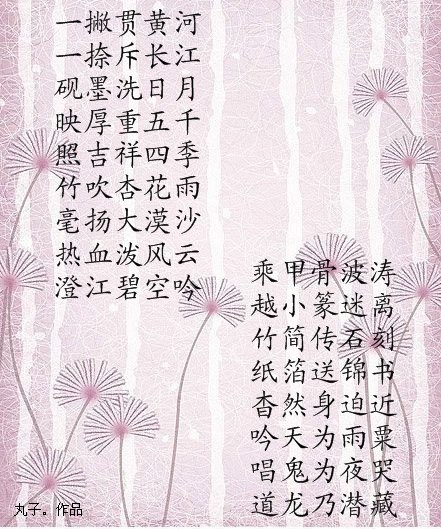 一撇贯黄河
一捺斥长江
砚墨洗日月
映厚重五千
照吉祥四季
竹吹杏花雨
毫扬大漠沙
热血泼风云
澄江碧空吟
乘甲骨波涛
越小篆迷离
竹简传石刻
纸箔送锦书
杳然身迫近
吟天为雨粟
唱鬼为夜哭
道龙乃潜藏
丸子。作品